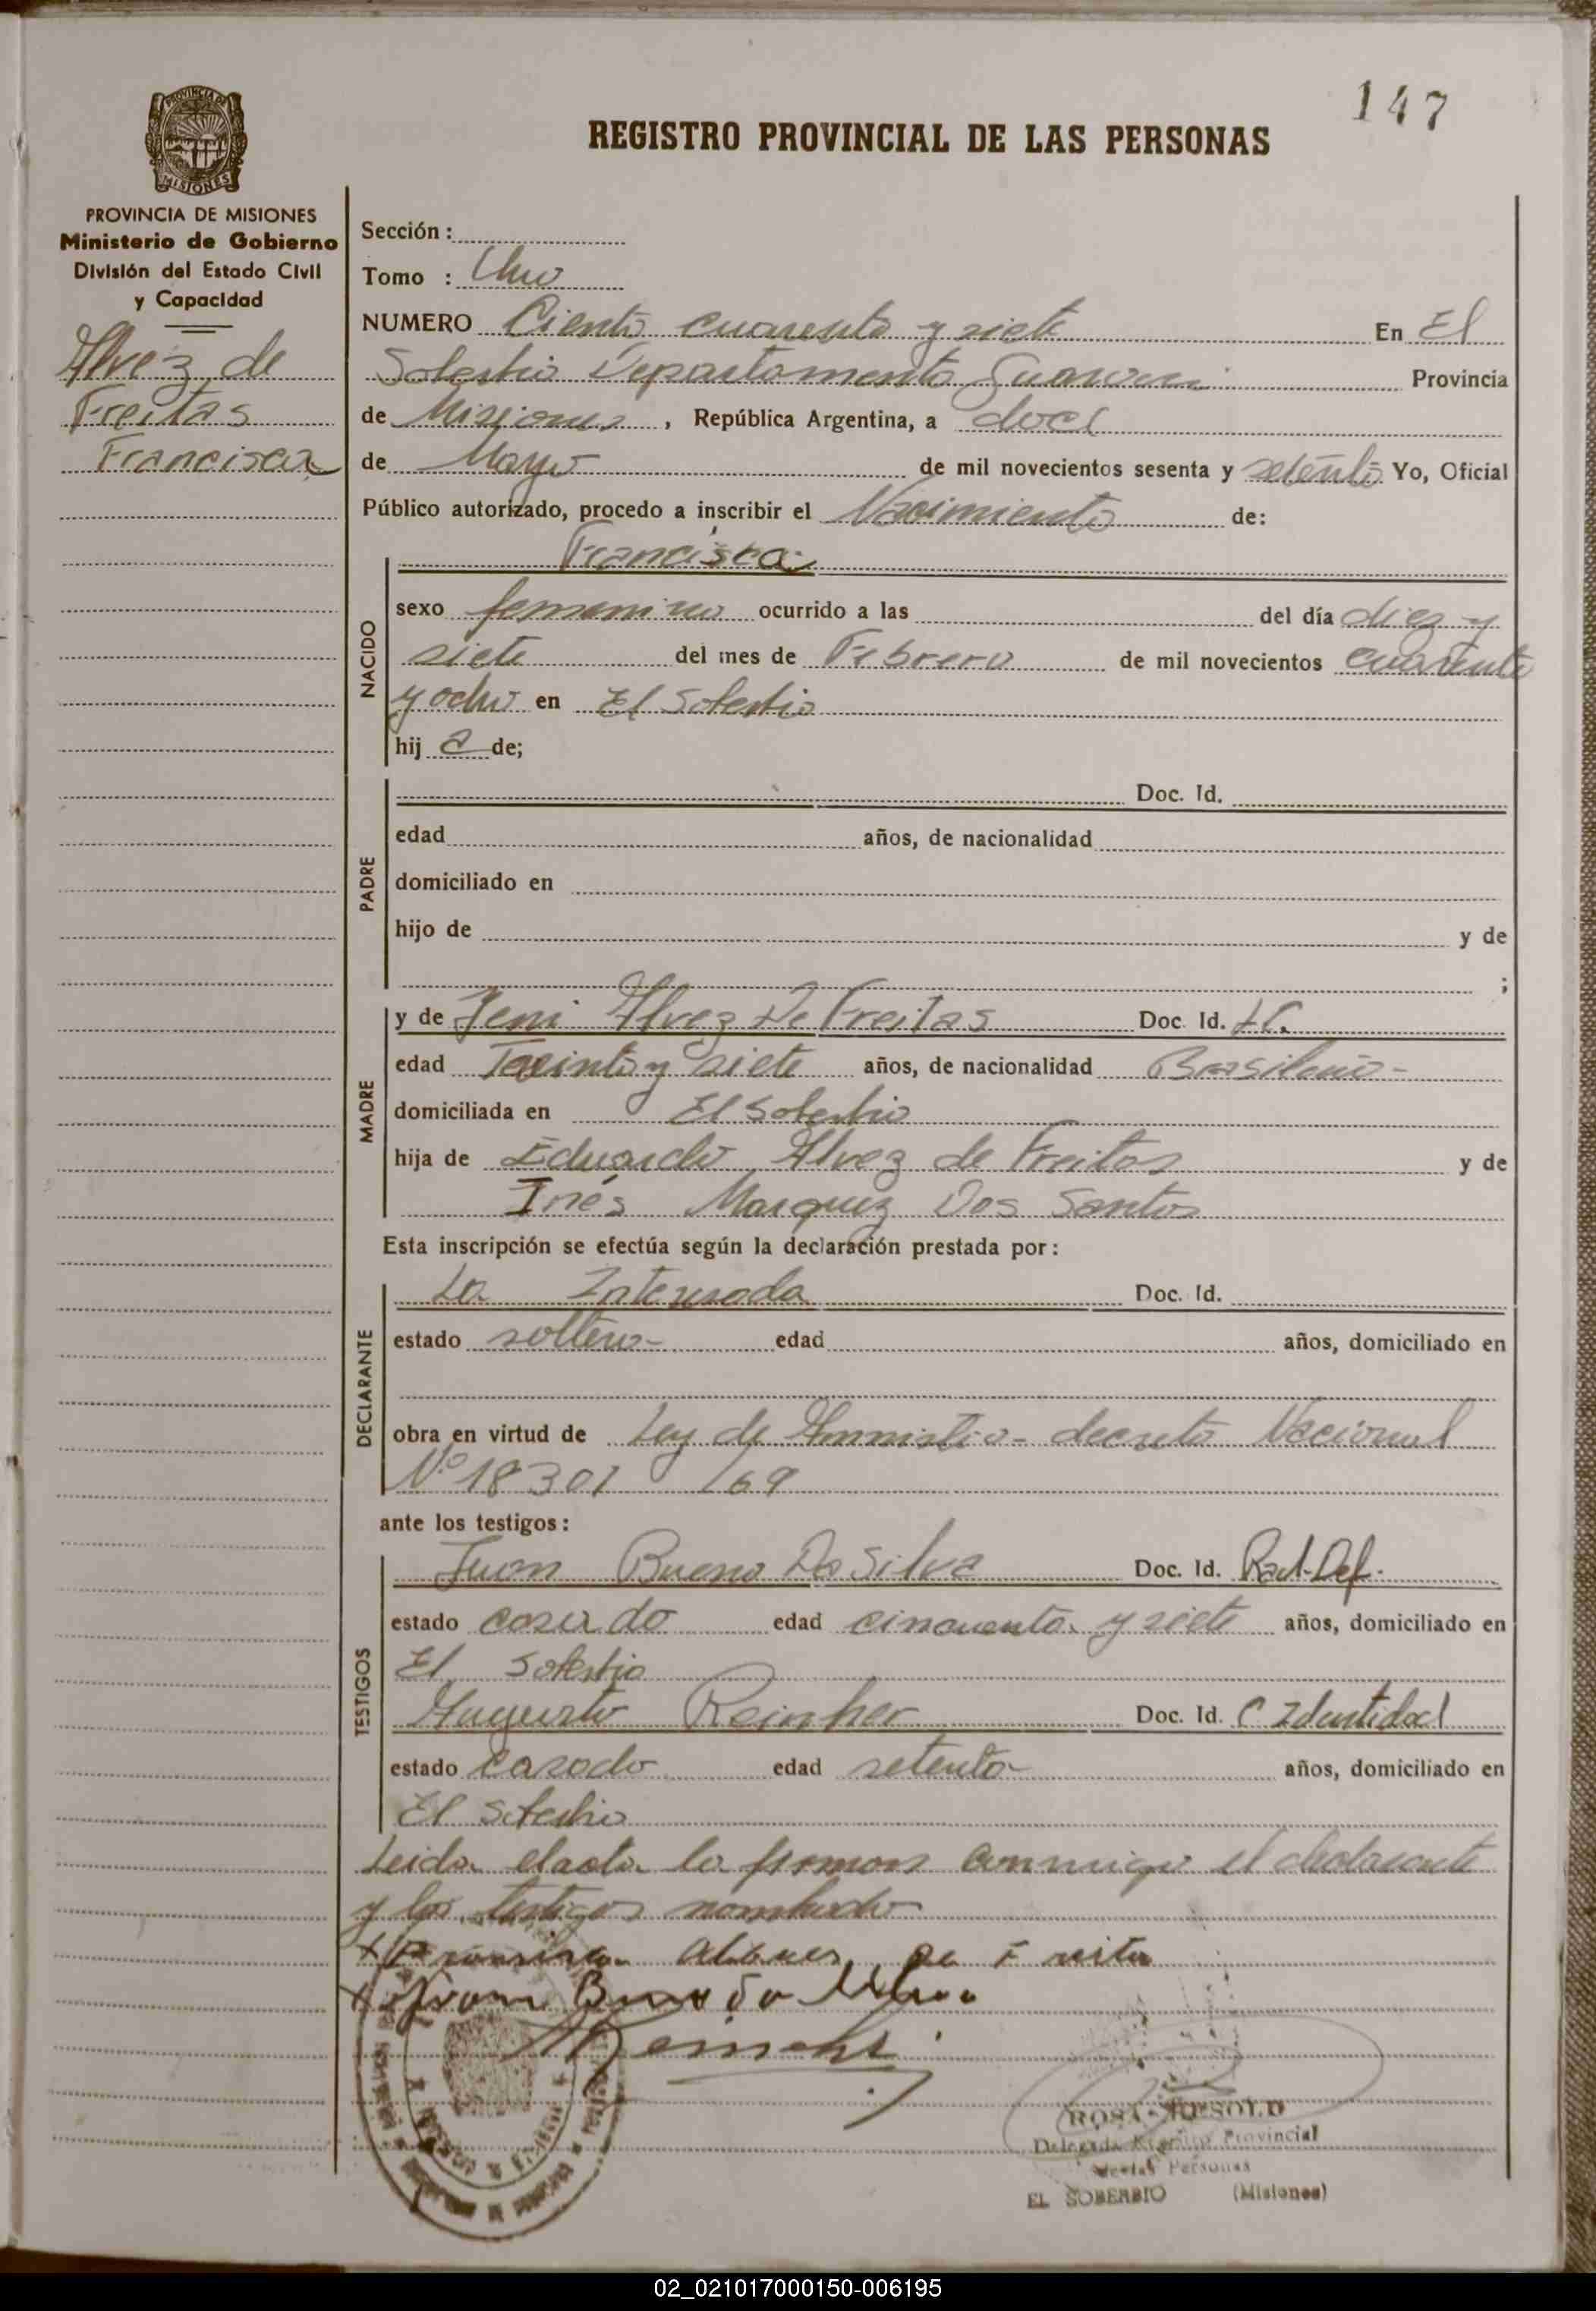 147
REGISTRO PROVINCIAL DE LAS PERSONAS
PROVINCIA DE MISIONES
MISIONES
PROVINCIA DE MISIONES
Ministerio de Gobierno
División del Estado Civil
y Capacidad
Alvez de
Freitas
Francisca
Sección :
Tomo : Uno
NUMERO Ciento cuarenta y siete En El
Soberbio Departamento Guarani Provincia
de Misiones, República Argentina, a doce
de Mayo de mil novecientos sesenta y setenta Yo, Oficial
Público autorizado, procedo a inscribir el Nacimiento de:
Francisca
NACIDO
sexo femenino ocurrido a las del día diez y
siete del mes de Febrero de mil novecientos cuarenta
y ocho en El Soberbio
hij a de;
PADRE
Doc. Id.
edad años, de nacionalidad
domiciliado en
hijo de y de
;
MADRE
y de Jeni Alvez De Freitas Doc. Id.
edad Treinta y siete años, de nacionalidad Brasileña-
domiciliada en El Soberbio
hija de Eduardo Alvez de Freitas y de
Inés Marquez Dos Santos
Esta inscripción se efectúa según la declaración prestada por:
DECLARANTE
La Interesada Doc. Id.
estado soltera- edad años, domiciliado en
obra en virtud de Ley de Amnistia- decreto Nacional
Nº 18301 /69
ante los testigos:
TESTIGOS
Juan Bueno Da Silva Doc. Id. Rad-Def.
estado casado edad cincuenta y siete años, domiciliado en
El Soberbio
Augusto Reinher Doc. Id. C Identidad
estado casado edad setenta años, domiciliado en
El Soberbio
Leida el acta la firman conmigo el declarante
y los testigos nombrado
de Freita
ROSA
Delegada Registro Provincial
de las Personas
EL SOBERBIO (Misiones)
02_021017000150-006195